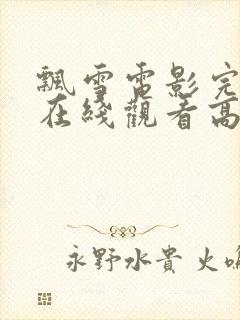 飄雪電影完
在綫觀看高
永野水貴 火